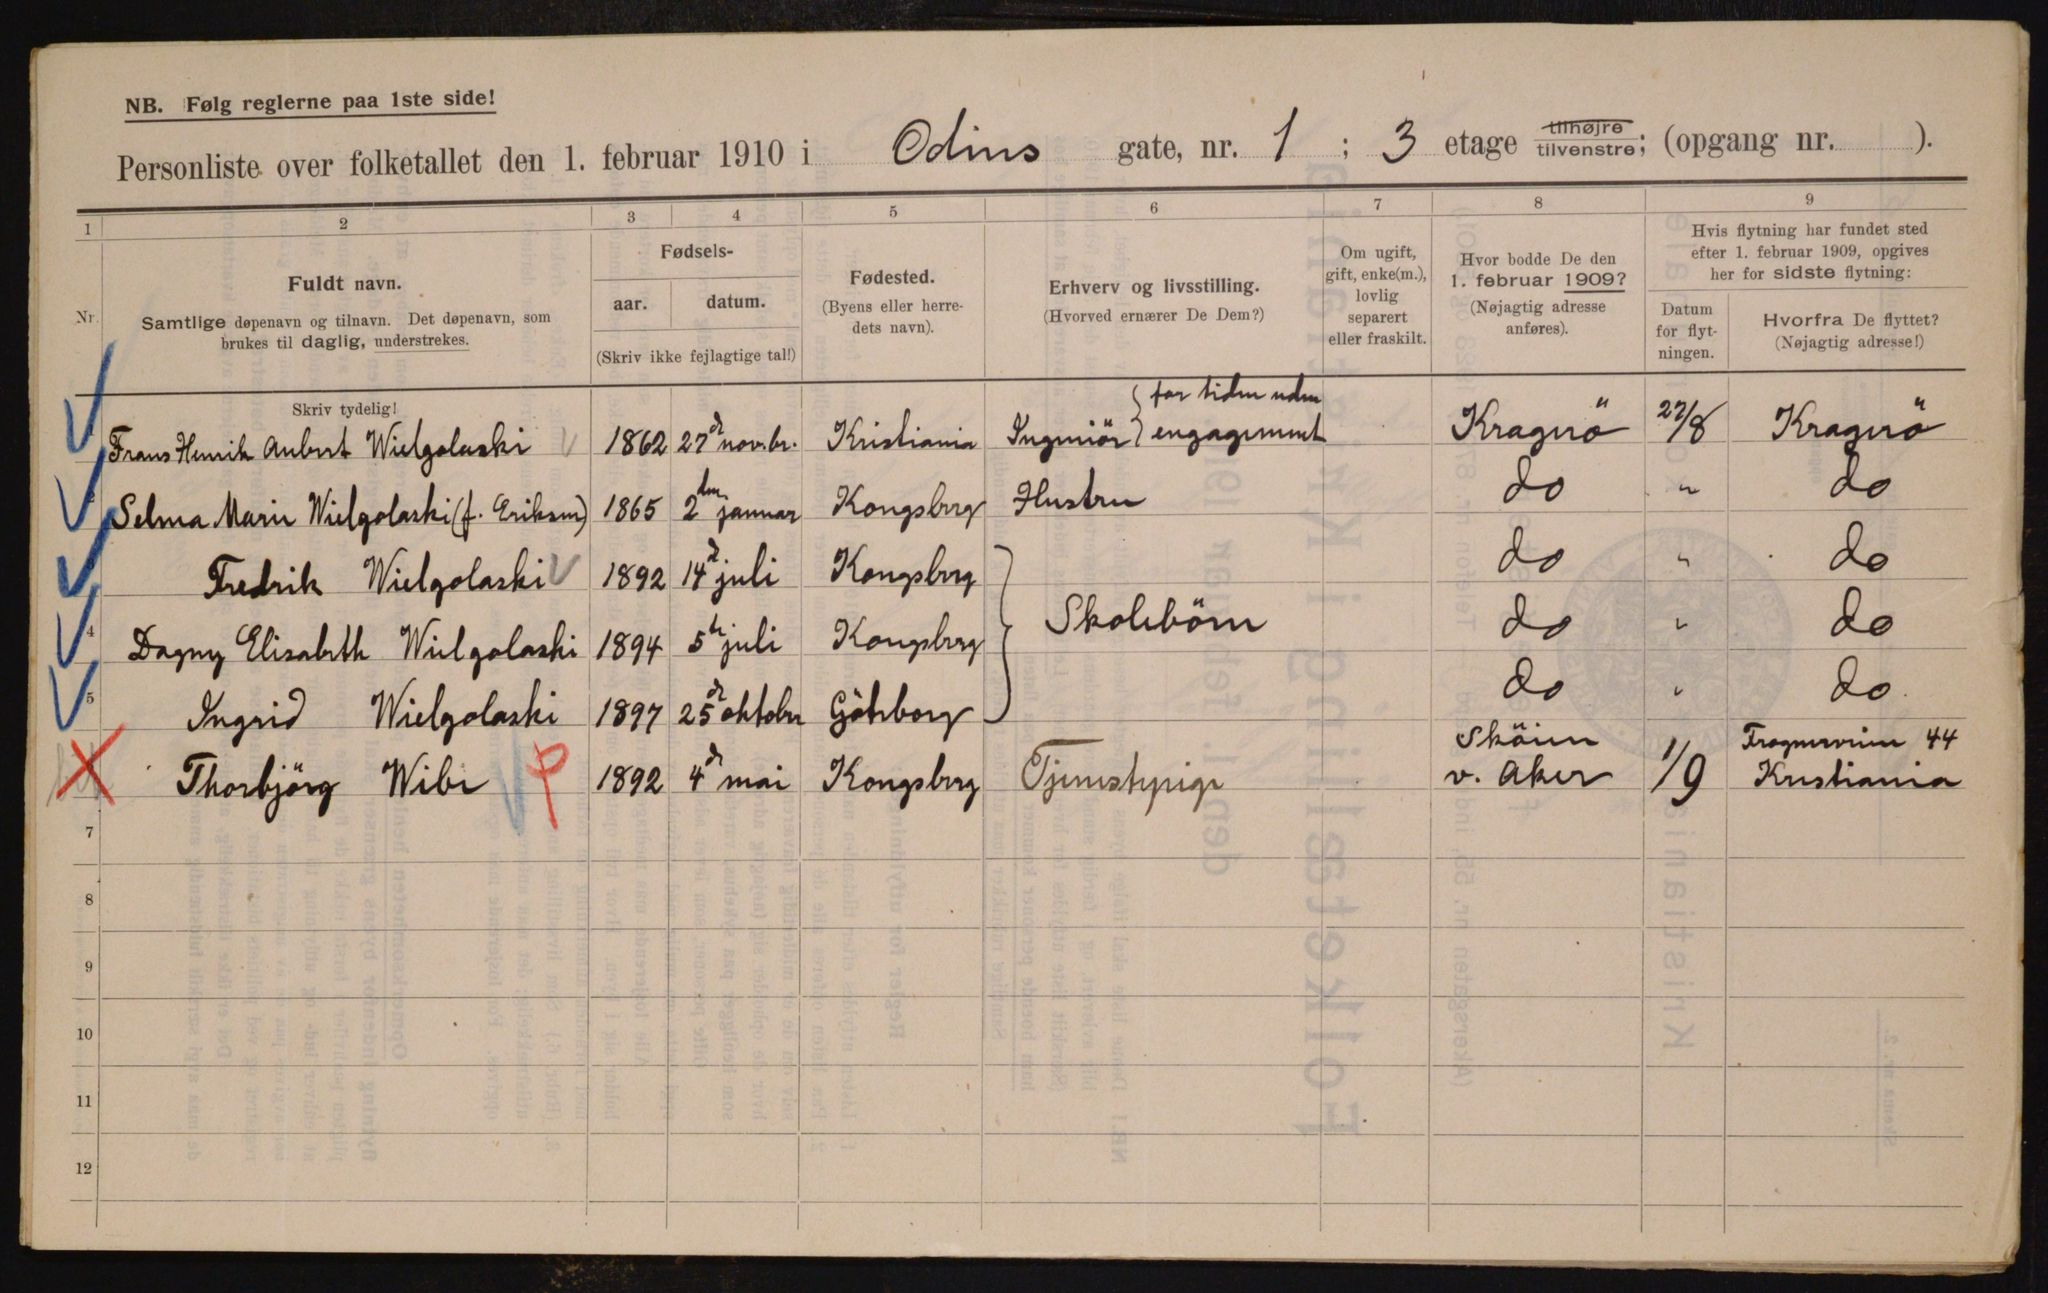 NB. Følg reglerne paa 1ste side!
Personliste over folketallet den 1. februar 1910 i Odins gate, nr. 1 ; 3 etage tilhøjre tilvenstre; (opgang nr. ).
1 2 3 4 5 6 7 8 9
Nr. Fuldt navn. Samtlige døpenavn og tilnavn. Det døpenavn, som brukes til daglig, understrekes.
Fødsels- aar. datum. (Skriv ikke fejlagtige tal!)
Fødested. (Byens eller herredets navn).
Erhverv og livsstilling. (Hvorved ernærer De Dem?)
Om ugift, gift, enke(m.), lovlig separert eller fraskilt.
Hvor bodde De den 1. februar 1909? (Nøjagtig adresse anføres).
Hvis flytning har fundet sted efter 1. februar 1909, opgives her for sidste flytning:
Datum for flytningen.
Hvorfra De flyttet? (Nøjagtig adresse!)
Skriv tydelig!
Frans Henrik Aubert Wielgolaski 1862 27d novbr. Kristiania Ingeniör { for tiden uden engagement Kragerö 27/8 Kragerö
Selma Marie Wielgolaski (f. Eriksen) 1865 2den januar Kongsberg Hustru do " do
Fredrik Wielgolaski 1892 14d juli Kongsberg do " do
4 Dagny Elisabeth Wielgolaski 1894 5te juli Kongsberg Skolebörn do " do
5 Ingrid Wielgolaski 1897 25d oktober Göteborg do " do
Thorbjörg Wibe 1892 4d mai Kongsberg Tjenestepige Sköien v. Aker 1/9 Frognerveien 44 Kristiania
7
8
9
10
11
12